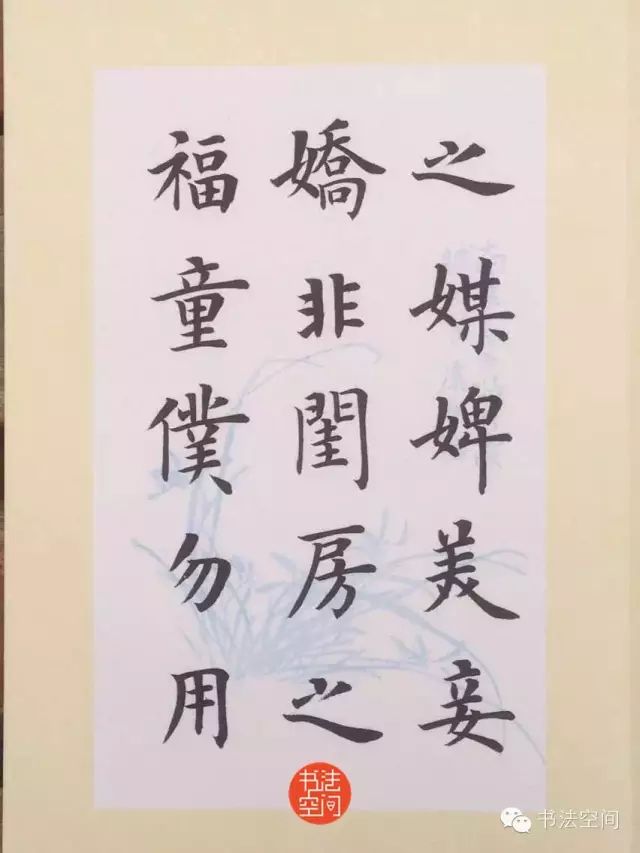 之媒婢美妾
嬌非閨房之
福童僕勿用
书法
空间
书法空间